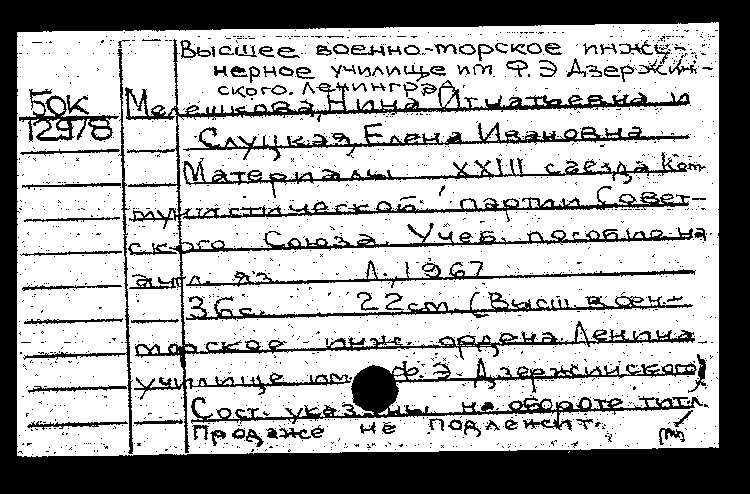 Высшее военно-морское инже-
нерное училище им Ф. Э Дзержин-
ского. Ленинград.
БОК Мелешкова, Нина Игнатьевна и
12978 Слуцкая, Елена Ивановна
Материалы XXIII съезда Ком-
мунистической партии Совет-
ского Союза. Учеб. пособие на
англ. яз. Л., 1967
36с. 22см (Высш воен-
морское инж. ордена Ленина
училище им. Ф. Э. Дзержинского)
Сост. указаны на обороте титл.
Продаже не подлежит.